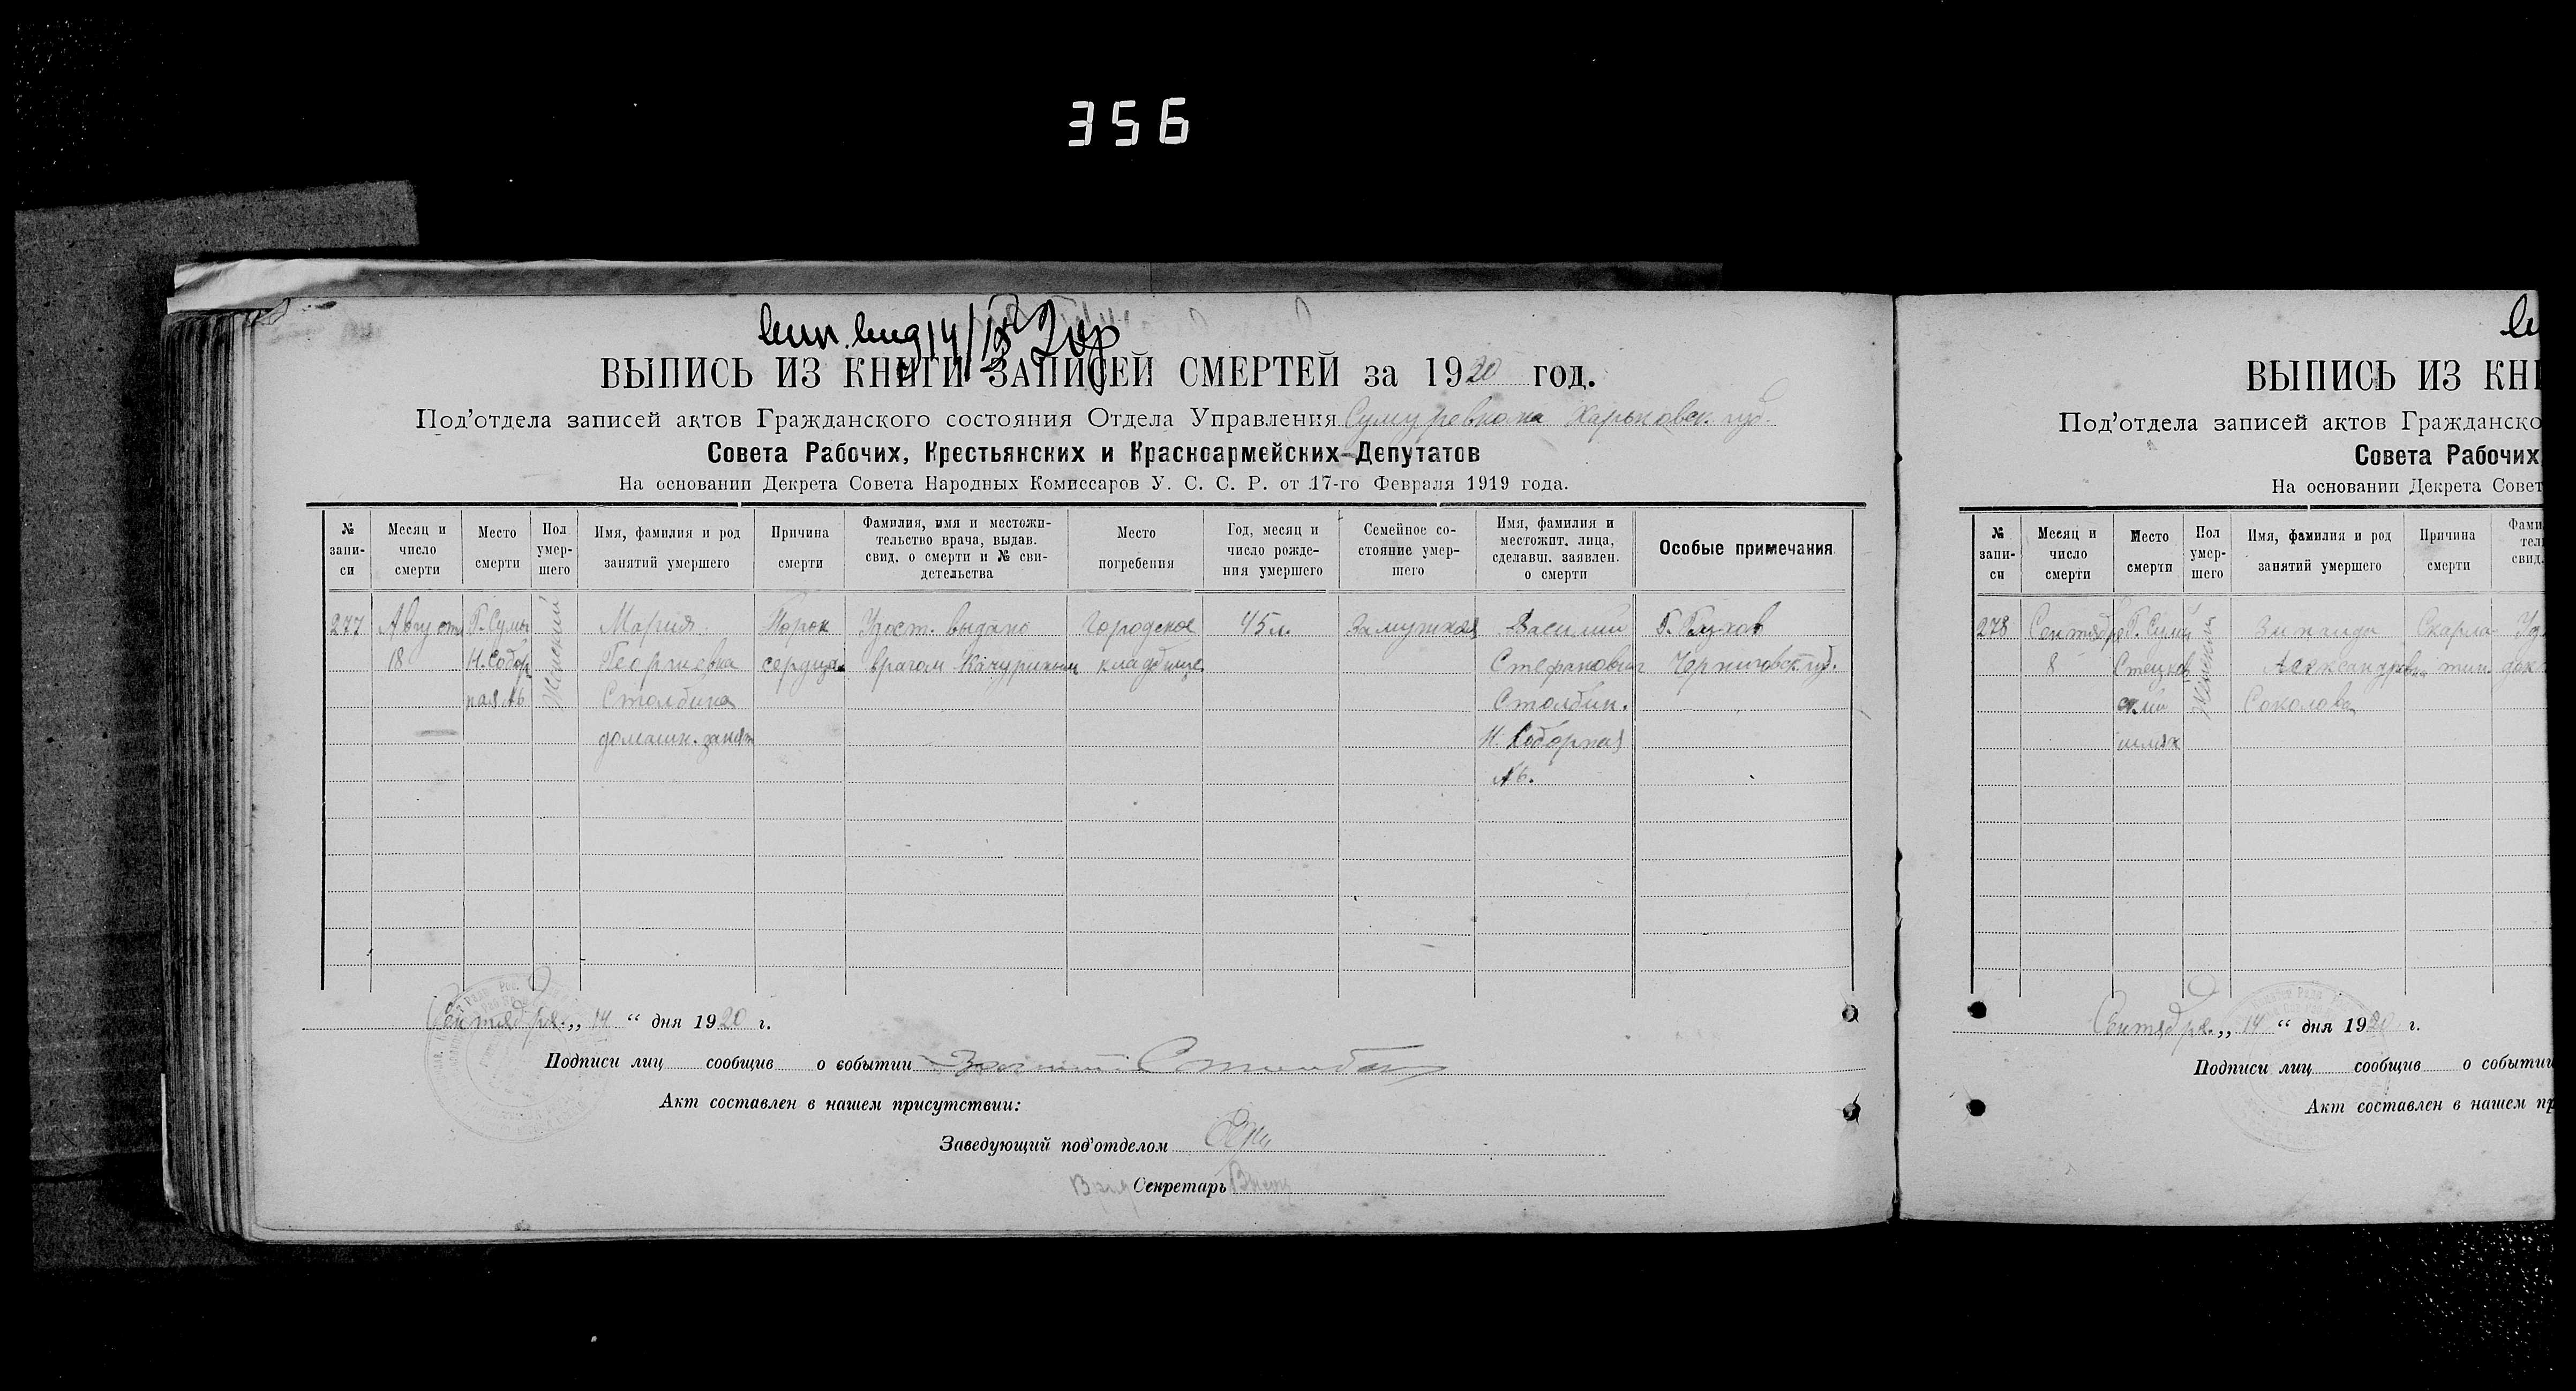 356
ВЫПИСЬ ИЗ КНИГИ ЗАПИСЕЙ СМЕРТЕЙ за 1920 год.
Под'отдела записей актов Гражданского состояния Отдела Управления Сумуревкома Харьковск. губ.
Совета Рабочих, Крестьянских и Красноармейских Депутатов
На основании Декрета Совета Народных Комиссаров У. С. С. Р. от 17-го Февраля 1919 года.
№ запи-
си
Месяц и
число
смерти
Место
смерти
Пол
умер-
шего
Имя, фамилия и род
занятий умершего
Причина
смерти
Фамилия, имя и местожи-
тельство врача, выдав.
свид. о смерти и № сви-
детельства
Место
погребения
Год, месяц и
число рожде-
ния умершего
Семейное со-
стояние умер-
шего
Имя, фамилия и
местожит. лица,
сделавш. заявлен.
о смерти
Особые примечания
277
Август
18
Г. Сумы
Н. Собор
ная №6
Женский
Мария
Георгиевна
Столбина
домашн. занят
Порок
сердца
Удост. выдано
врачом Качуриным
Городское
кладбище
45 л.
Замужняя
Василий
Стефанович
Столбин.
Н. Соборная
№6.
Г. Глухов
Черниговск. губ.
Сентября „ 14 “ дня 1920 г.
Подписи лиц сообщив о событии
Акт составлен в нашем присутствии:
Заведующий под'отделом
Секретарь
ВЫПИСЬ ИЗ КНИ
Под'отдела записей актов Гражданско
Совета Рабочих
На основании Декрета Совет
№
запи-
си
Месяц и
число
смерти
Место
смерти
Пол
умер-
шего
Имя, фамилия и род
занятий умершего
Причина
смерти
Фами
тел
свид.
278
Сентября
8
Г. Сумы
Стецков
ский
шлях
Женский
Зинаида
Александровна
Соколова
Скарла
тин
Уд
Сентября „ 14 “ дня 1920 г.
Подписи лиц сообщив о событии
Акт составлен в нашем пр